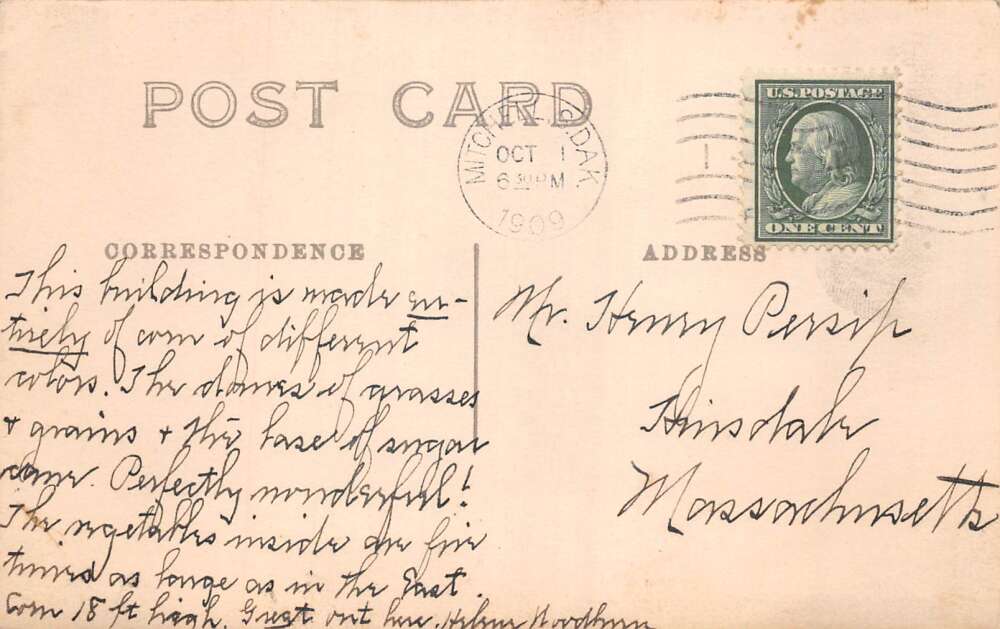 POST CARD
MITCHELL, S.DAK.
OCT 1
6 30 PM
1909
U.S. POSTAGE
ONE CENT
1
CORRESPONDENCE
ADDRESS
This building is made en-
tirely of corn of different
colors. The domes of grasses
& grains & the base of sugar
cane. Perfectly wonderful!
The vegetables inside are five
times as large as in the East.
Corn 18 ft high. Great out here. Helene Woodburn
Mr. Henry Persip
Hinsdale
Massachusetts